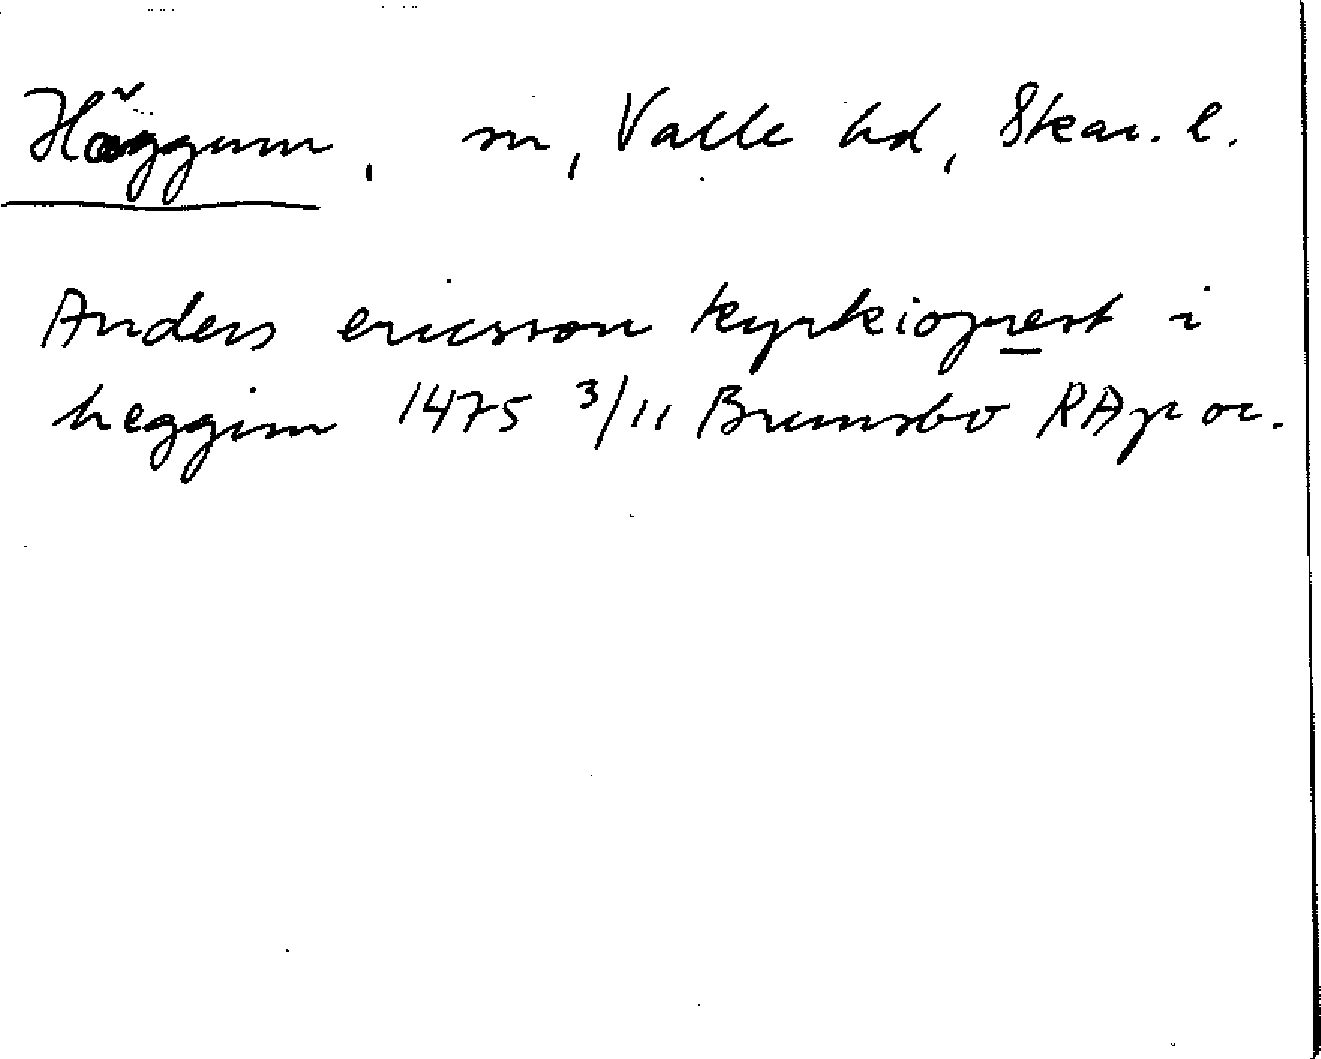 Häggum, sn, Valle hd, Skar. l.
Anders ericsson kyrkioprest i
heggim 1475 3/11 Brunsbo RAp or.